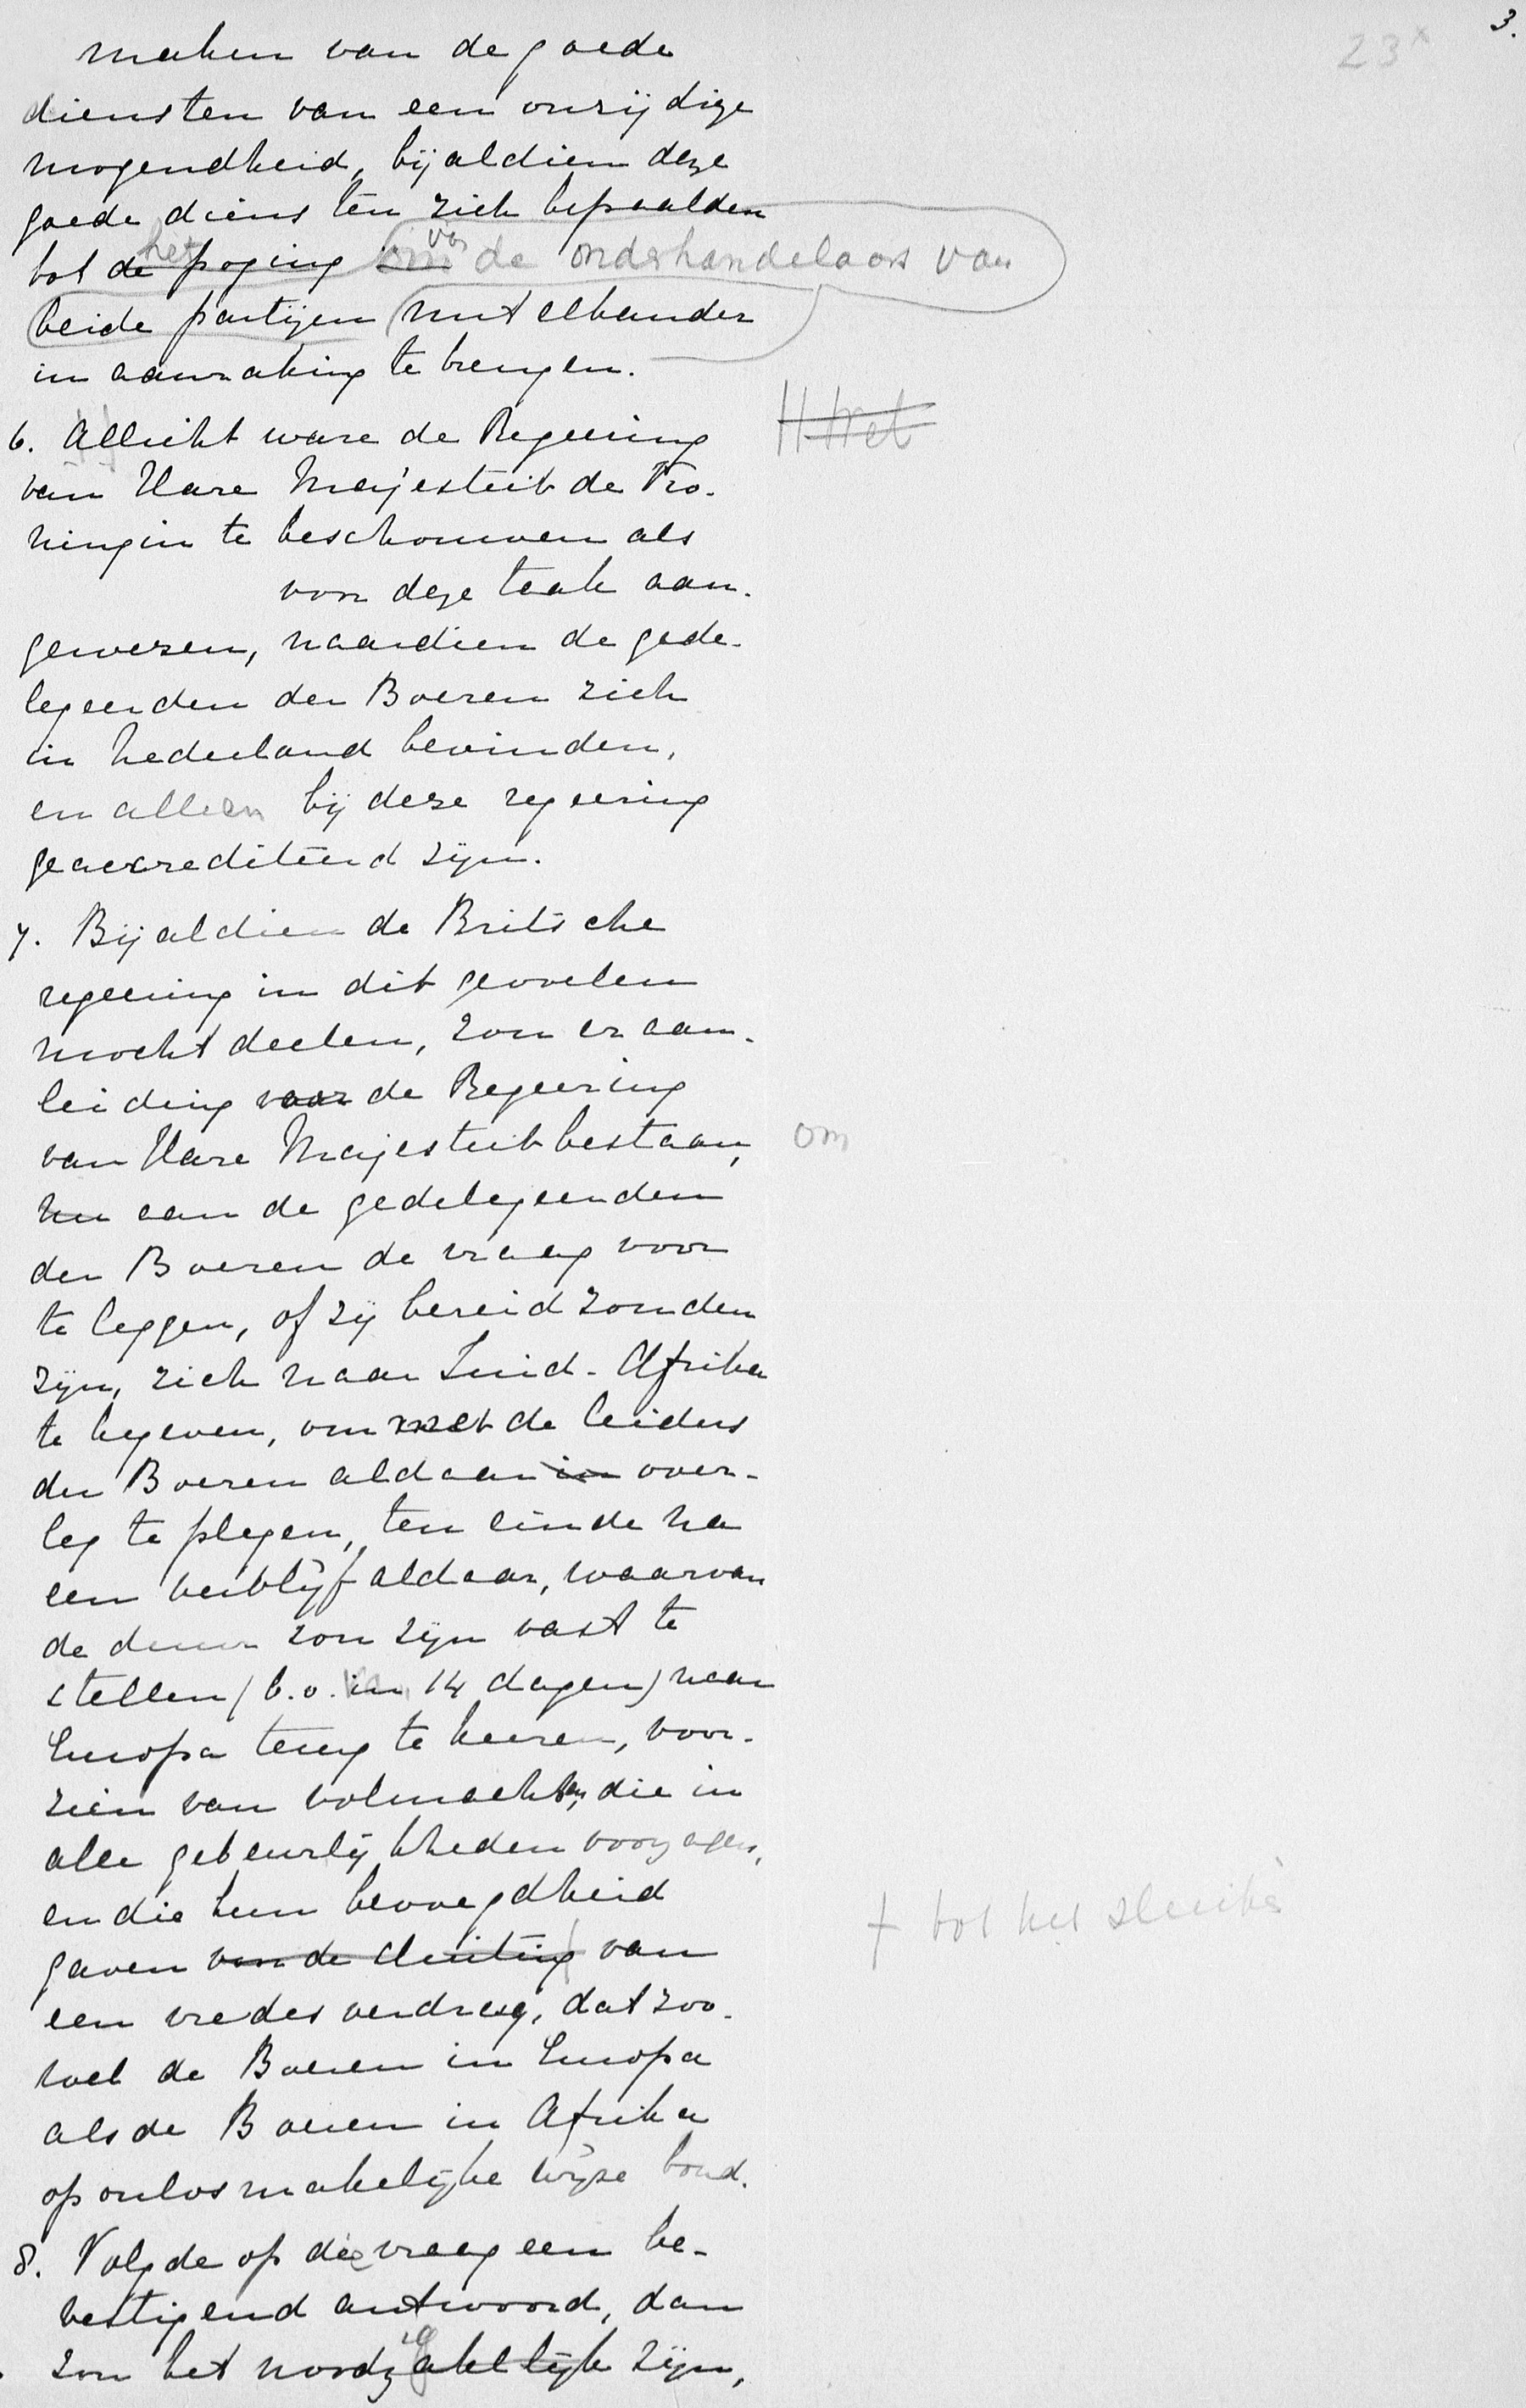 3.
23x
maken van de goede
diensten van een onzijdige
mogendheid, bijaldien deze
goede diensten zich bepaalden
tot de het poging om van de onderhandelaars van
beide partijen met elkander
in aanraking te brengen.
6. Allicht ware de Regeering
van Hare Majesteit de Ko-
ningin te beschouwen als
voor deze taak aan-
gewezen, naardien de gede-
legeerden der Boeren zich
in Nederland bevinden,
en alleen bij deze regeering
geaccrediteerd zijn.
7. Bijaldien de Britsche
regeering in dit gevoelen
mocht deelen, zou er aan-
leiding voor de Regeering
van Hare Majesteit bestaan, om
aan de gedelegeerden
der Boeren de vraag voor
te leggen, of zij bereid zouden
zijn, zich naar Zuid-Afrika
te begeven, om met de leiders
der Boeren aldaar in over-
leg te plegen, ten einde na
een verblijf aldaar, waarvan
de duur zou zijn vast te
stellen (b.v. van 14 dagen) naar
Europa terug te keeren, voor-
zien van volmachten, die in
alle gebeurlijkheden voorzagen,
en die hun bevoegdheid
gaven voor de sluiting van
† tot het sluiten
een vredesverdrag, dat zoo-
wel de Boeren in Europa
als de Boeren in Afrika
op onlosmakelijke wijze bond.
8. Volgde op die vraag een be-
vestigend antwoord, dan
zou het noodzakelijk ig zijn,